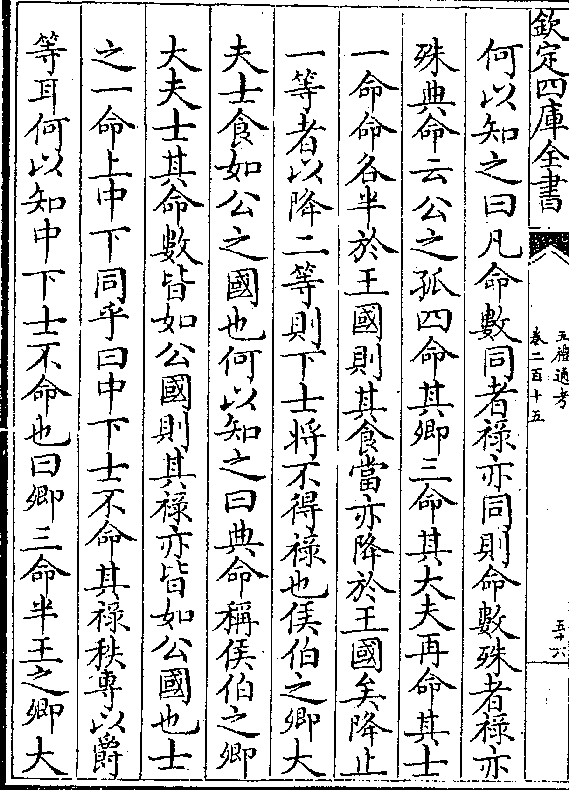 欽定四庫全書
五禮通考
卷二百十五
五十六
何以知之曰凡命數同者祿亦同則命數殊者祿亦
殊典命云公之孤四命其卿三命其大夫再命其士
一命命各半於王國則其食當亦降於王國矣降止
一等者以降二等則下士將不得祿也侯伯之卿大
夫士食如公之國也何以知之曰典命稱侯伯之卿
大夫士其命數皆如公國則其祿亦皆如公國也士
之一命上中下同乎曰中下士不命其祿秩專以爵
等耳何以知中下士不命也曰卿三命半王之卿大